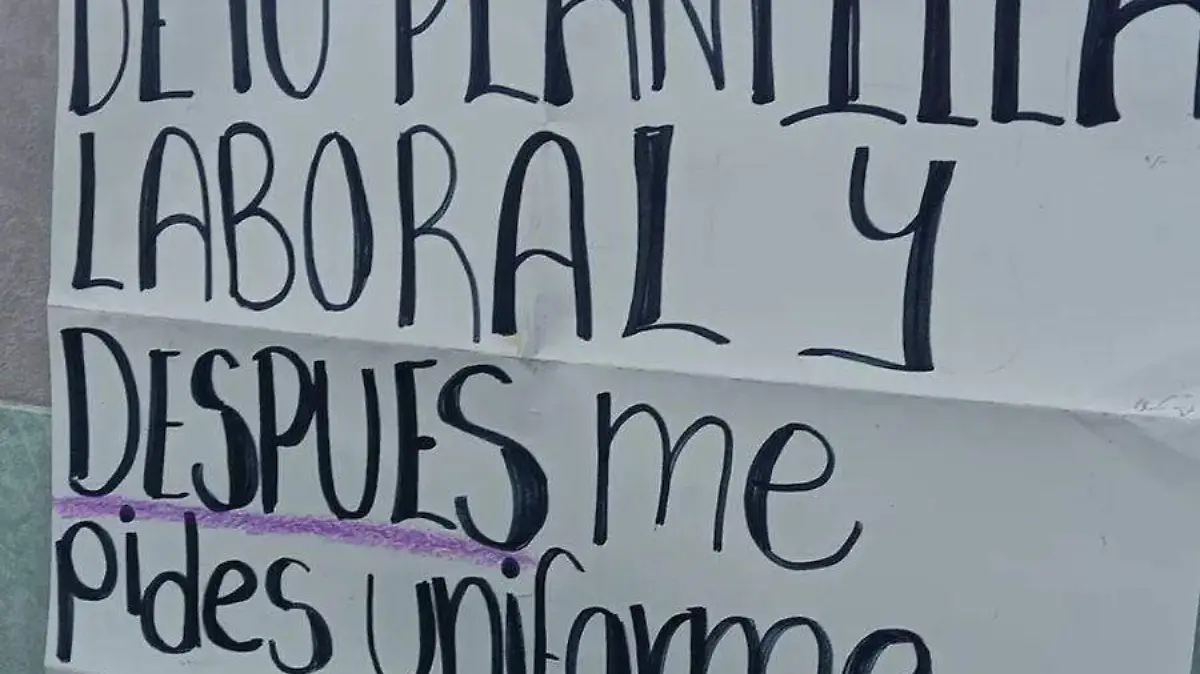 DE TU PLANTILLA
LABORAL Y
DESPUES me
pides uniforme